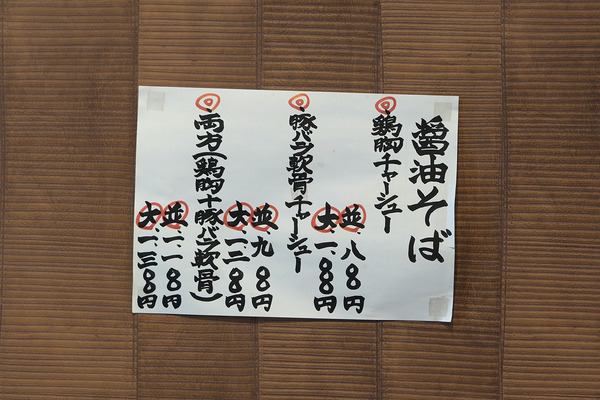 醤油そば
◎鶏胸チャーシュー
並、八〇〇円
大、一、〇〇〇円
◎豚バラ軟骨チャーシュー
並、九〇〇円
大、一、一〇〇円
◎両方(鶏胸+豚バラ軟骨)
並、一、一〇〇円
大、一、三〇〇円